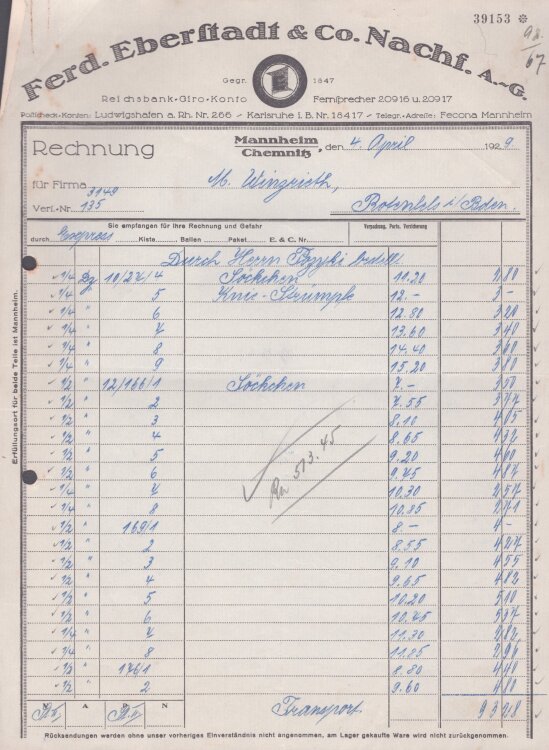 39153 *
Ferd. Eberstadt & Co. Nachf. A.-G.
Gegr. 1847
Reichsbank-Giro-Konto Fernsprecher 20916 u. 20917
Postscheck-Konten: Ludwigshafen a. Rh. Nr. 266 - Karlsruhe i. B. Nr. 18417 - Telegr.-Adresse: Fecona Mannheim
Rechnung Mannheim, Chemnitz den 4. April 1929
für Firma
3149
Verl.-Nr. 135
Sie empfangen für Ihre Rechnung und Gefahr Verpackung, Porto, Versicherung
durch Express Kiste Ballen Paket E. & C. Nr.
Durch Herrn
1/4 Dz 10/27/4 Söckchen 11.20 2 80
1/4 " 5 Knie-Strümpfe 12.- 3 -
1/4 " 6 12.80 3 20
1/4 " 7 13.60 3 40
1/4 " 8 14.40 3 60
1/4 " 9 15.20 3 80
1/2 " 12/166/1 Söckchen 7.- 3 50
1/2 " 2 7.55 3 77
1/2 " 3 8.10 4 05
1/2 " 4 8.65 4 32
1/2 " 5 9.20 4 60
1/2 " 6 9.75 4 87
1/4 " 7 10.30 2 57
1/4 " 8 10.85 2 71
1/2 " 169/1 8.- 4 -
1/2 " 2 8.55 4 27
1/2 " 3 9.10 4 55
1/2 " 4 9.65 4 82
1/2 " 5 10.20 5 10
1/2 " 6 10.75 5 37
1/4 " 7 11.30 2 82
1/4 " 8 11.85 2 96
1/2 " 176/1 8.80 4 40
1/2 " 2 9.60 4 80
M A P N
Transport 93 28
Rücksendungen werden ohne unser vorheriges Einverständnis nicht angenommen, am Lager gekaufte Ware wird nicht zurückgenommen.
Erfüllungsort für beide Teile ist Mannheim.